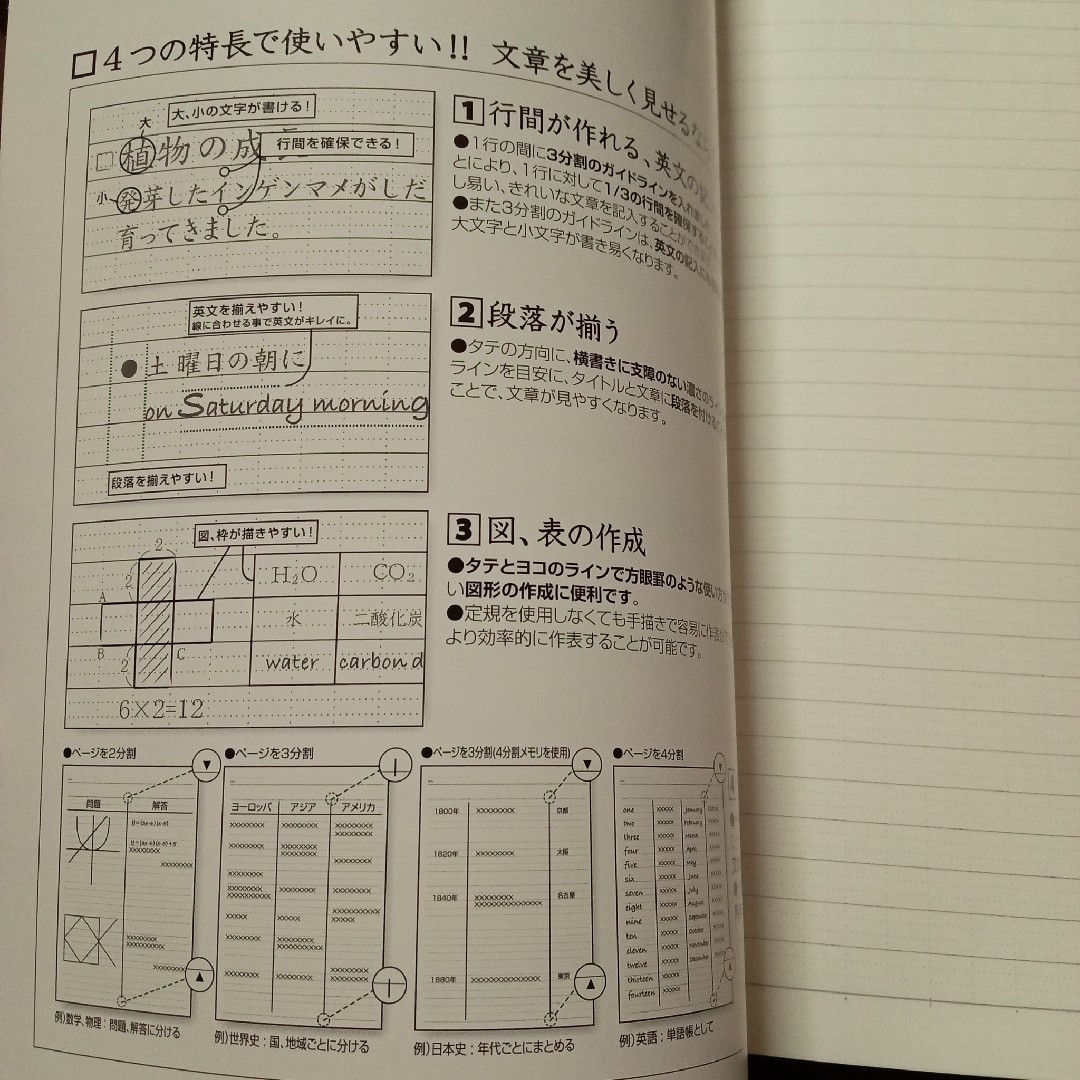 □4つの特長で使いやすい!! 文章を美しく見せる
大、小の文字が書ける!
大
行間を確保できる!
植物の成
小
発芽したインゲンマメがしだ
育ってきました。
1 行間が作れる、英文の
●1行の間に3分割のガイドラインを入れ
とにより、1行に対して1/3の行間を確保
し易い、きれいな文章を記入することが
●また3分割のガイドラインは、英文の記入に
大文字と小文字が書き易くなります。
英文を揃えやすい!
線に合わせる事で英文がキレイに。
●土曜日の朝に
on Saturday morning
段落を揃えやすい!
2 段落が揃う
●タテの方向に、横書きに支障のない濃さのライ
ラインを目安に、タイトルと文章に段落を付ける
ことで、文章が見やすくなります。
図、枠が描きやすい!
2
2
A
B
C
2
6×2=12
H₂O CO₂
水 二酸化炭
water carbon d
3 図、表の作成
●タテとヨコのラインで方眼罫のような使い方
い図形の作成に便利です。
●定規を使用しなくても手描きで容易に作表
より効率的に作表することが可能です。
●ページを2分割
問題 解答
例)数学、物理:問題、解答に分ける
●ページを3分割
ヨーロッパ アジア アメリカ
xxxxxxxx xxxxxxxx xxxxxxxx
例)世界史:国、地域ごとに分ける
●ページを3分割(4分割メモリを使用)
1800年 xxxxxxxx 京都
1820年 xxxxxxxx 大阪
1840年 xxxxxxxx 名古屋
1880年 東京
例)日本史:年代ごとにまとめる
●ページを4分割
one xxxxx January xxxxx
two xxxxx February
three xxxxx March
four xxxxx April
five xxxxx May
six xxxxx June
seven xxxxx July
eight xxxxx August
nine xxxxx September
ten xxxxx October
eleven xxxxx November
twelve xxxxx December
thirteen xxxxx
fourteen xxxxx
例)英語:単語帳として